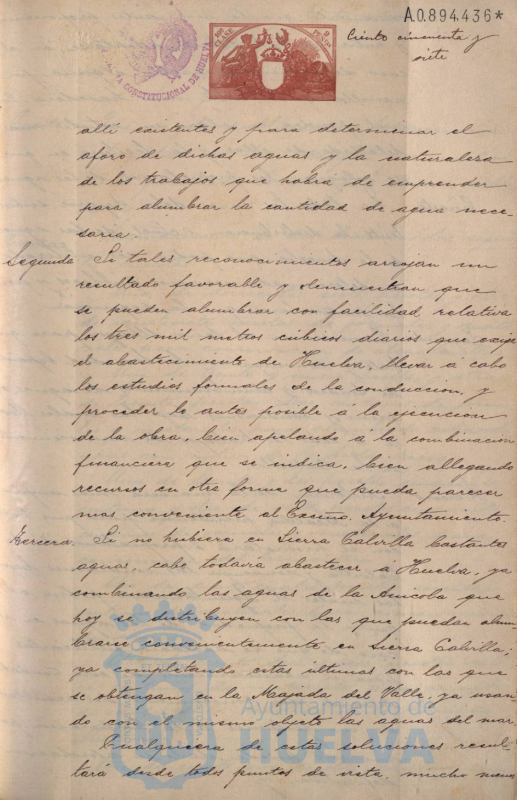 A.0.894.436*
Ciento cincuenta y
siete
10ª CLASE
2 PESETAS
CONSTITUCIONAL DE HUELVA
allí existentes y para determinar el
aforo de dichas aguas y la naturaleza
de los trabajos que habra de emprender
para alumbrar la cantidad de agua nece-
saria.
Segunda Si tales reconocimientos arrojan un
resultado favorable y demuestran que
se pueden alumbrar con facilidad relativa
los tres mil metros cúbicos diarios que exije
el abastecimiento de Huelva, llevar á cabo
los estudios formales de la conduccion, y
proceder lo antes posible á la ejecucion
de la obra, bien apelando á la combinacion
financiera que se indica, bien allegando
recursos en otra forma que pueda parecer
mas conveniente al Excmo. Ayuntamiento.
Tercera. Si no hubiera en Sierra Calvilla bastantes
aguas, cabe todavia abastecer á Huelva, ya
combinando las aguas de la que
hoy se distribuyen con las que puedan alum-
brarse convenientemente en Sierra Calvilla;
ya completando estas últimas con las que
se obtengan en la Majada del Valle, ya usan-
do con el mismo objeto las aguas del mar.
Cualquiera de estas soluciones resul-
tará desde todos puntos de vista, mucho menos
Ayuntamiento de
HUELVA